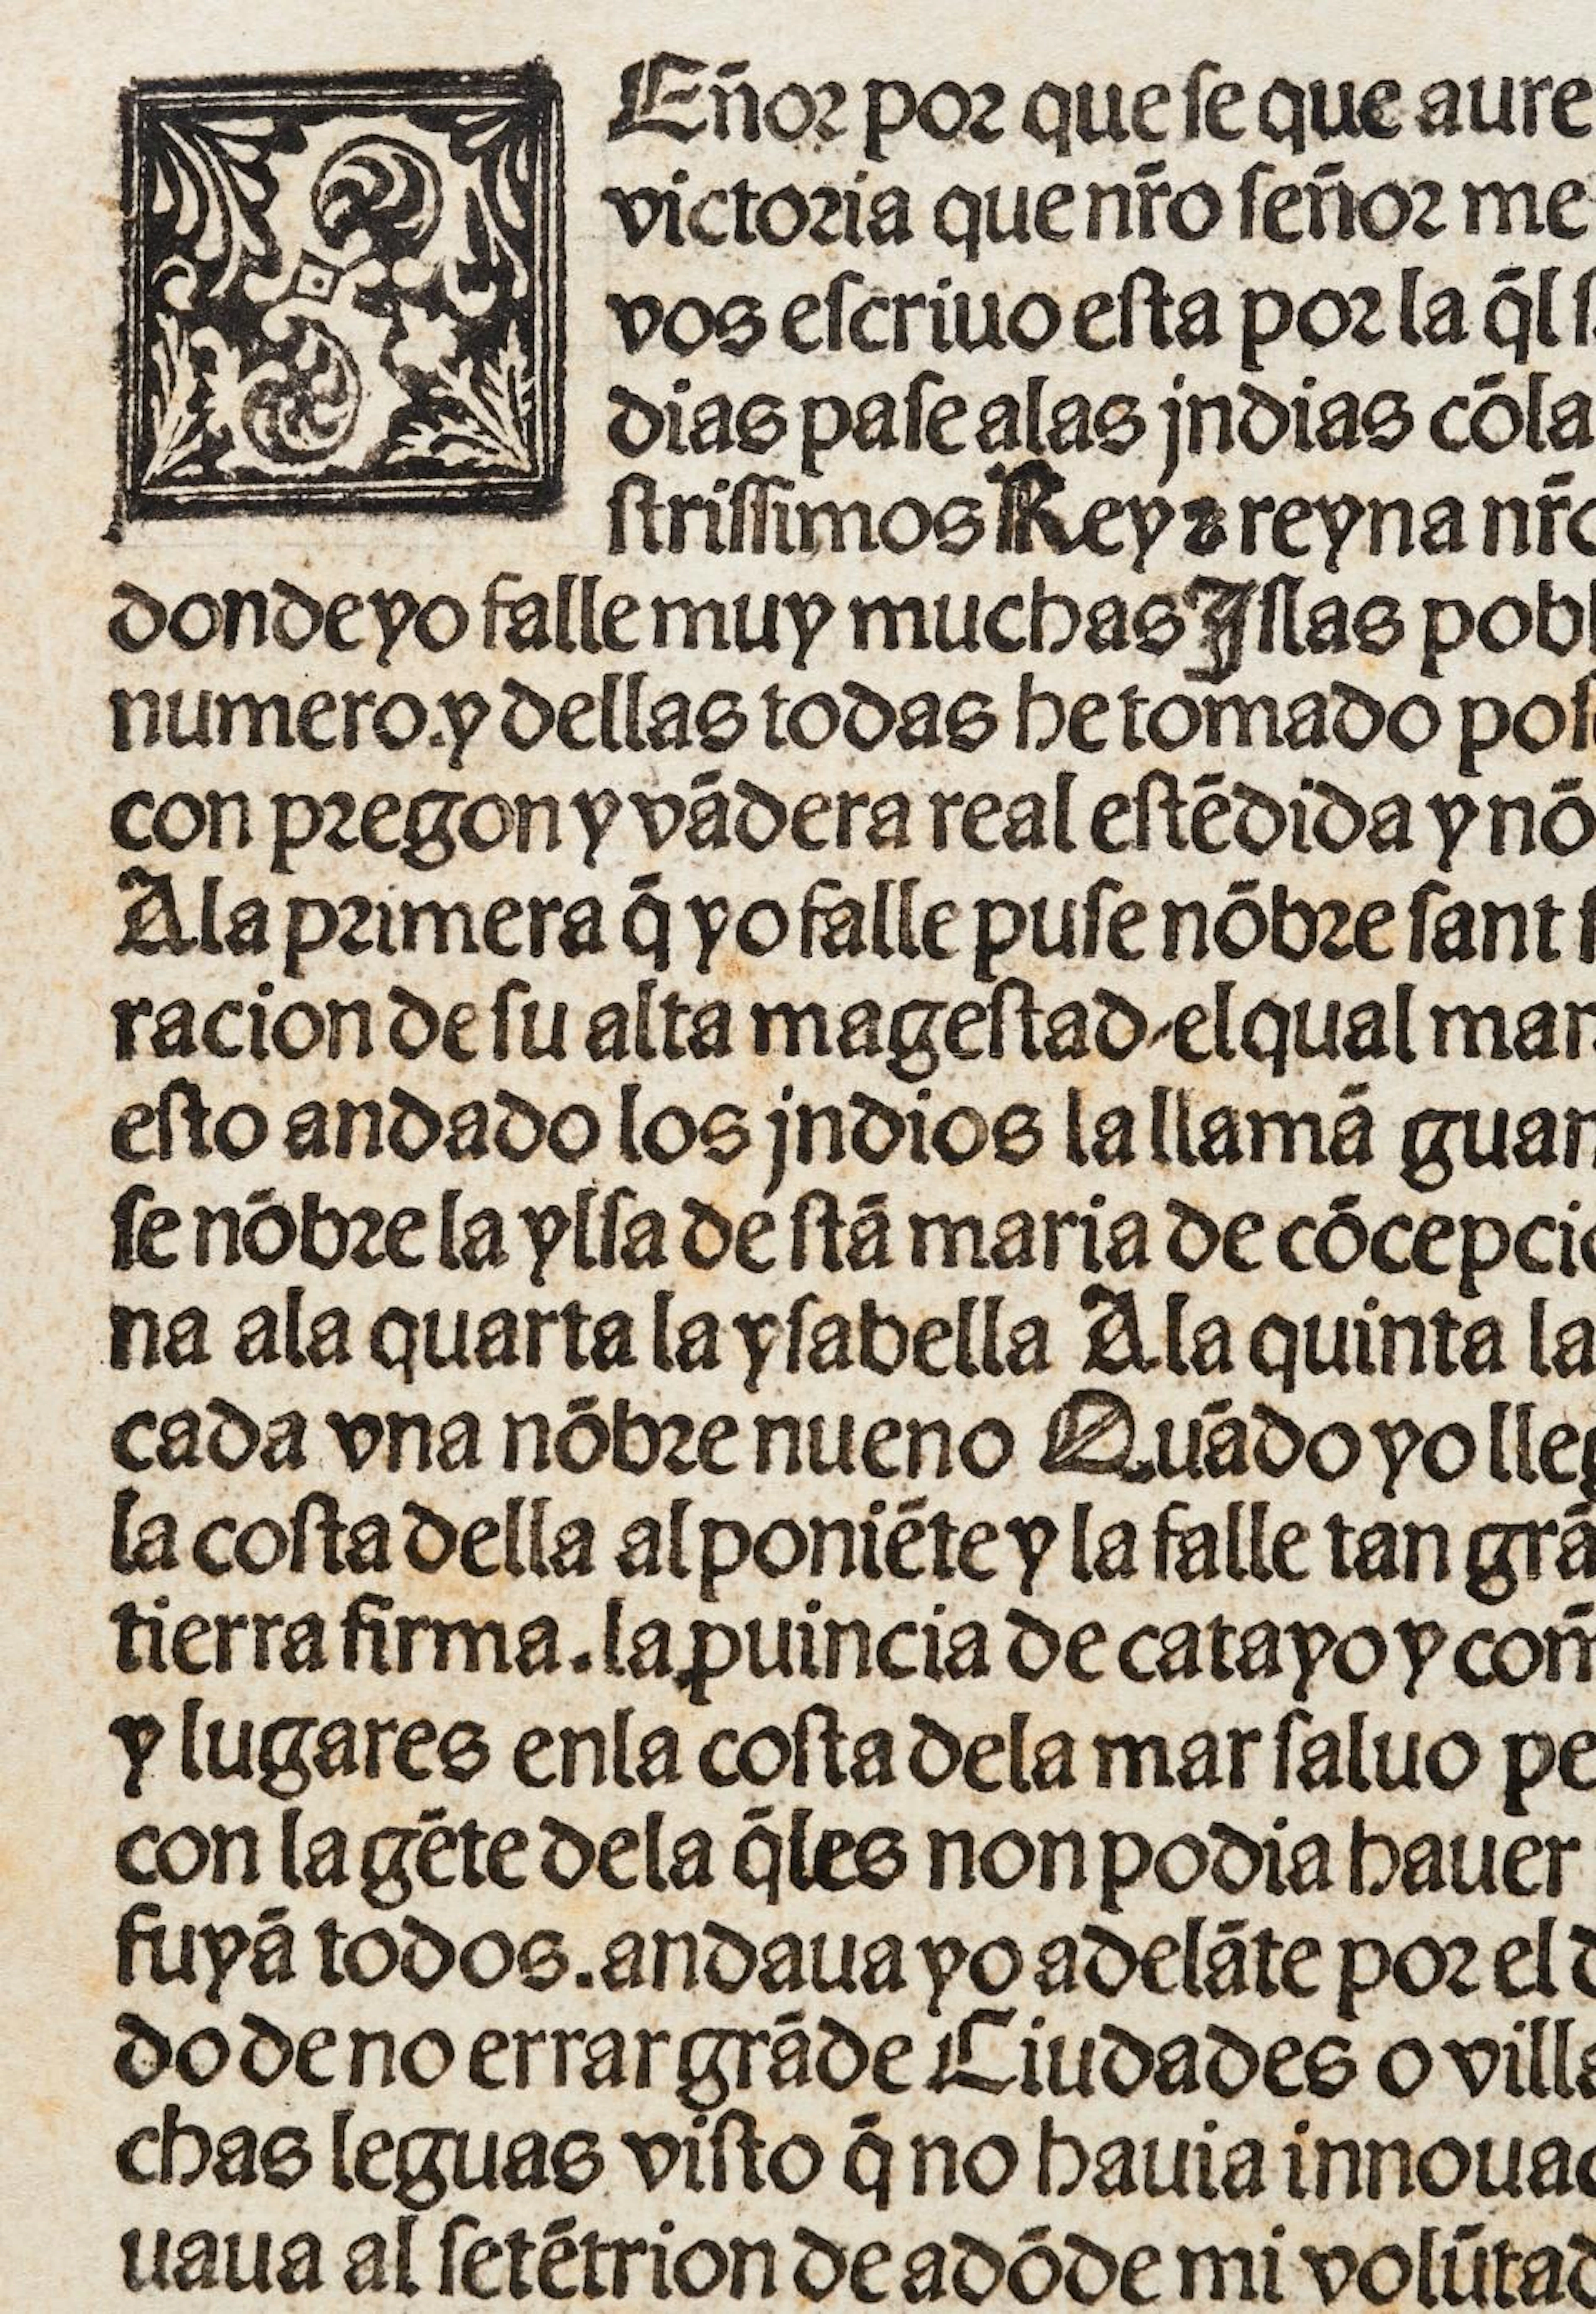 SEñor por que se que aure
victoria que nr̄o señor me
vos escriuo esta por la q̄l
dias pase alas jndias cōla
strissimos Rey ⁊ reyna nr̄o
donde yo falle muy muchas Islas pobl
numero. y dellas todas he tomado pos
con pregon y vādera real estēdida y nō
A la primera q̄ yo falle puse nōbre sant
racion de su alta magestad. el qual mar
esto andado los jndios la llamā guan
se nōbre la ylsa de stā maria de cōcepcio
na ala quarta la ysabella A la quinta la
cada vna nōbre nueno Quādo yo lleg
la costa della al poniēte y la falle tan grā
tierra firma. la ꝓuincia de catayo y com̄
y lugares enla costa dela mar saluo pe
con la gēte dela q̄les non podia hauer
fuyā todos. andaua yo adelāte por el d
do de no errar grāde Ciudades o villa
chas leguas visto q̄ no hauia innouac
uaua al setētrion de adōde mi volūtad